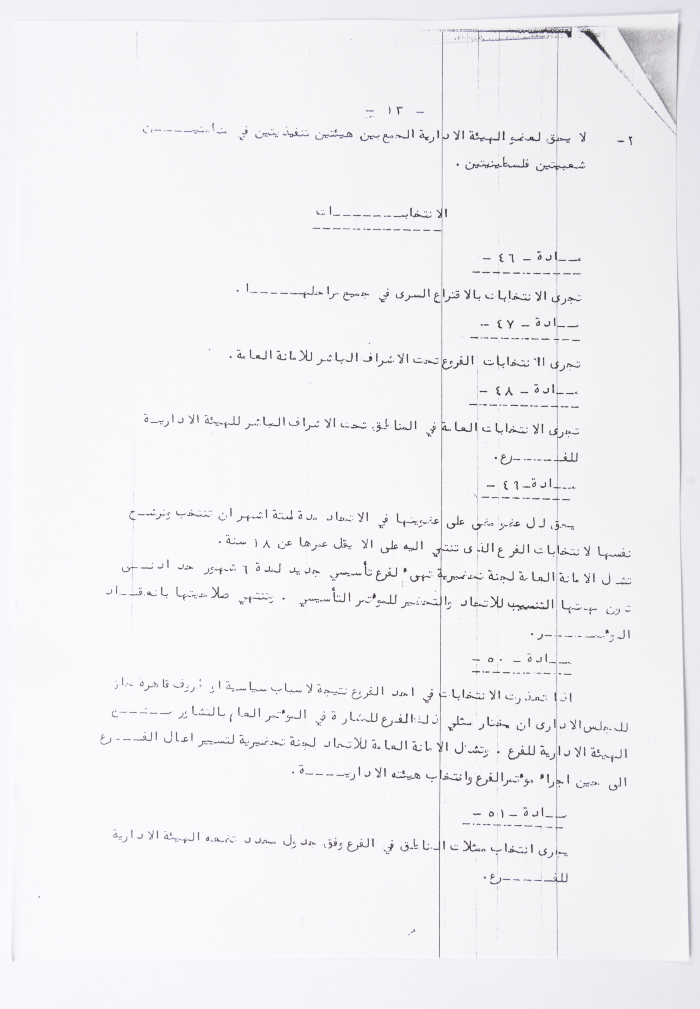 - ١٣ -
٢- لا يحق لعضو الهيئة الادارية الجمع بين هيئتين تنفيذيتين في منظمتيـــن
شعبيتين فلسطينيتين .
الانتخابـــــــات
مـــادة - ٤٦ -
تجرى الانتخابات بالاقتراع السرى في جميع مراحلهـــــا .
مـــادة - ٤٧ -
تجرى الانتخابات الفروع تحت الاشراف المباشر للامانة العامة .
مـــادة - ٤٨ -
تجرى الانتخابات العامة في المناطق تحت الاشراف المباشر للهيئة الاداريـة
للفــــــرع .
مـــادة - ٤٩ -
يحق لكل عضو مضى على عضويتها في الاتحاد مدة ستة اشهر ان تنتخب وترشـح
نفسها لانتخابات الفرع الذى تنتمي اليه على الا يقل عمرها عن ١٨ سنة .
تشكل الامانة العامة لجنة تحضيرية تهيء لفرع تأسيسي جديد لمدة ٦ شهور حد ادنـــى
تكون مهمتها التنسيب للاتحاد والتحضير للمؤتمر التأسيسي . وتنتهي صلاحيتها بانعقـــاد
المؤتمــــــر .
مـــادة - ٥٠ -
اذا تعذرت الانتخابات في احد الفروع نتيجة لاسباب سياسية او ظروف قاهرة جاز
للمجلس الادارى ان يختار ممثلي ذلك الفرع للمشاركة في المؤتمر العام بالتشاور مـــع
الهيئة الادارية للفرع . وتشكل الامانة العامة للاتحاد لجنة تحضيرية لتسيير اعمال الفـــرع
الى حين اجراء مؤتمر الفرع وانتخاب هيئته الاداريـــــة .
مـــادة - ٥١ -
يجرى انتخاب ممثلات المناطق في الفرع وفق جدول محدد تضعه الهيئة الادارية
للفــــــرع .